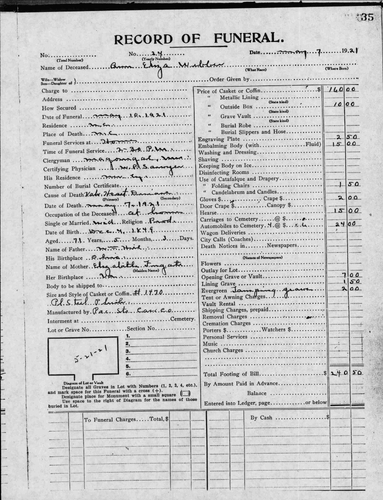 35
RECORD OF FUNERAL.
No. (Total Number) No. 24 (Yearly Number) Date May 7 1921
Name of Deceased Ann Eliza Webber
(What Name) (Where Born)
Wife-Widow
Son-Daughter of Order Given by
Charge to
Address
How Secured
Date of Funeral May 10, 1921
Residence
Place of Death
Funeral Services at Home
Time of Funeral Service 2:30 P.M.
Clergyman
Certifying Physician
His Residence
Number of Burial Certificate
Cause of Death Heart Disease
(Primary) (Secondary)
Date of Death May 7, 1921
Occupation of the Deceased at home
Single or Married Wid Religion Prod.
Date of Birth Dec 4, 1849
Aged Years Months 3 Days
Name of Father
His Birthplace
Name of Mother Elizabeth
(Maiden Name)
Her Birthplace
Body to be shipped to
Size and Style of Casket or Coffin # 1470
Manufactured by
Interment at Cemetery
Lot or Grave No. Section No.
1 2 3 4 5 6
5-21-21
Diagram of Lot or Vault
Designate all Graves in Lot with Numbers (1, 2, 3, 4, etc.), and mark space for this Funeral with a cross (+).
Designate place for Monument with a small square
Use space to the right of Diagram for the names of those buried in Lot.
Price of Casket or Coffin $ 160 00
" Metallic Lining
(State kind)
" Outside Box 10 00
(State kind)
" Grave Vault
(State kind)
" Burial Robe
" Burial Slippers and Hose
Engraving Plate 2 50
Embalming Body (with Fluid) 15 00
Washing and Dressing
Shaving
Keeping Body on Ice
Disinfecting Rooms
Use of Catafalque and Drapery
" Folding Chairs 1 50
" Candelabrum and Candles
Gloves $ Crape $ 2 00
Door Crape $ Canopy $
Hearse 15 00
Carriages to Cemetery @ $
Automobiles to Cemetery 4 @ $ 6 24 00
Wagon Deliveries
City Calls (Coaches)
Death Notices in Newspapers
(Names of Newspapers)
Flowers
Outlay for Lot
Opening Grave or Vault 7 00
Lining Grave 1 50
Evergreen 2 00
Tent or Awning Charges
Vault Rental
Shipping Charges, prepaid
Removal Charges
Cremation Charges
Porters $ Watchers $
Personal Services
Music
Church Charges
Total Footing of Bill $ 240 50
By Amount Paid in Advance
Balance
Entered into Ledger, page or below.
To Funeral Charges Total, $
By Cash $